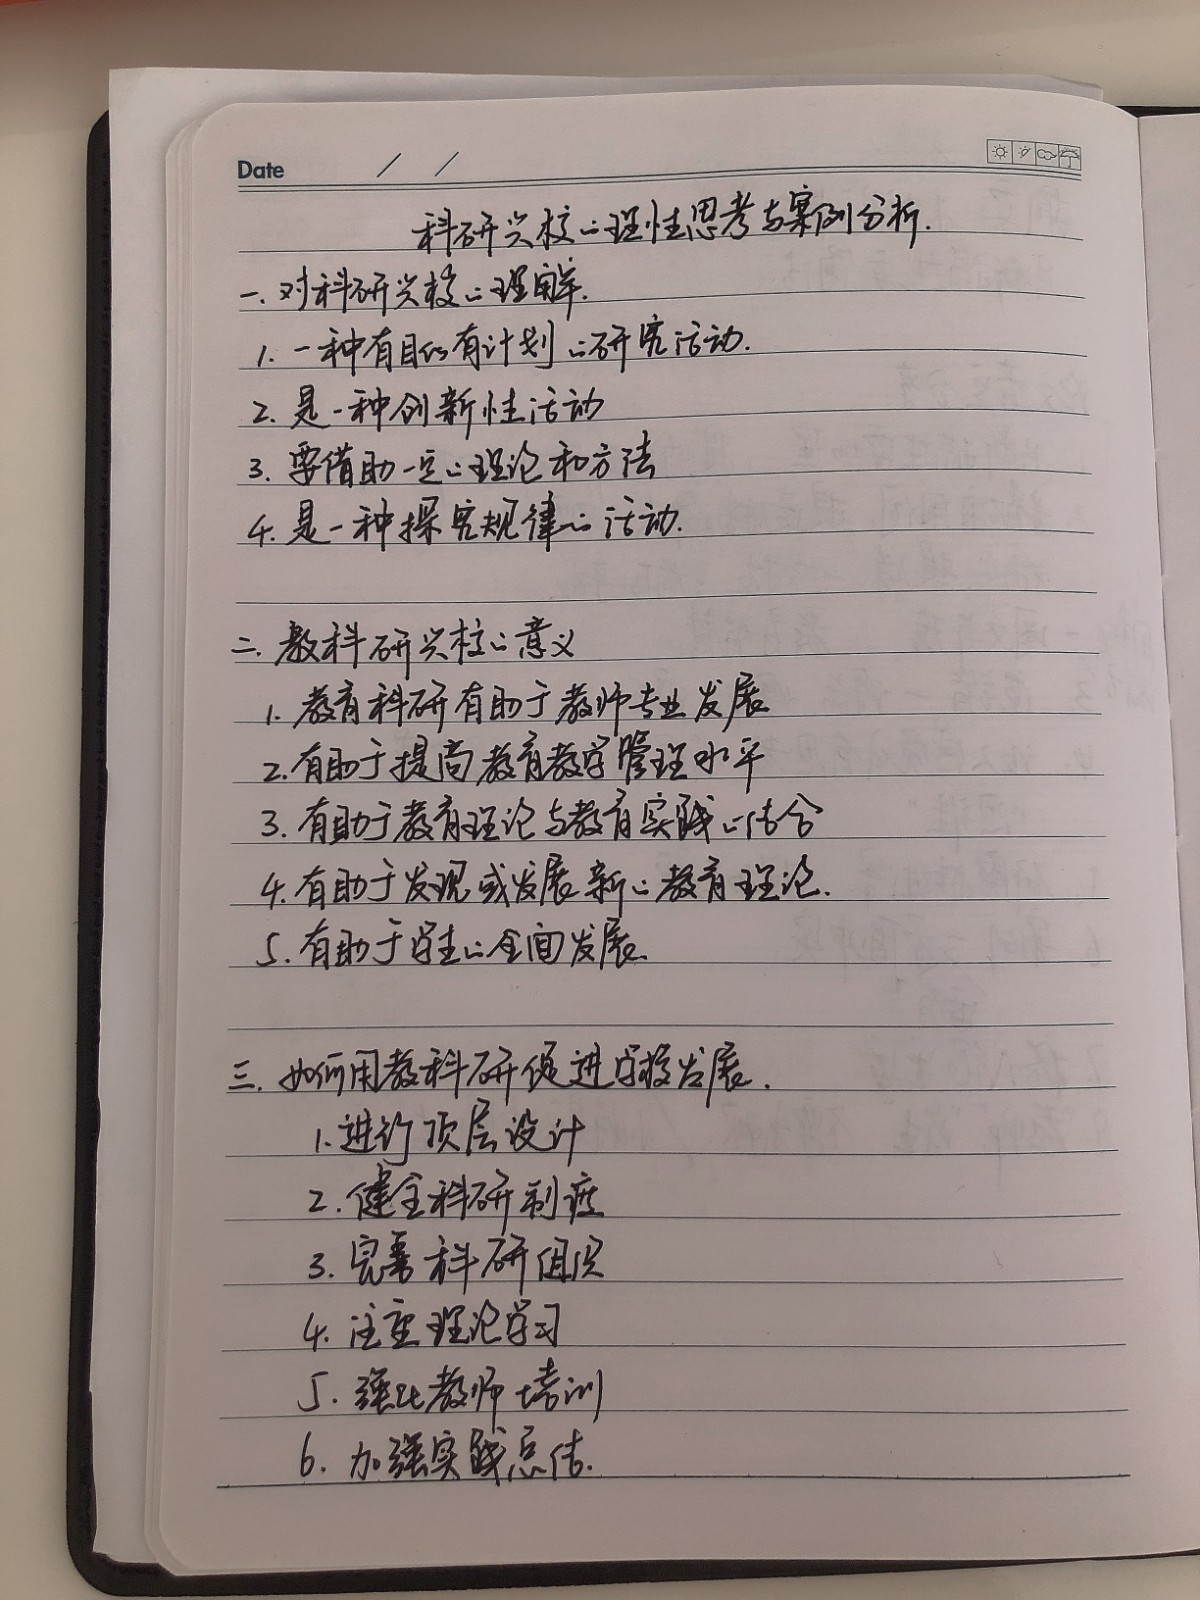 Date / /
科研兴校的理性思考与案例分析.
一.对科研兴校的理解.
1.一种有目的有计划的研究活动.
2.是一种创新性活动
3.要借助一定的理论和方法
4.是一种探究规律的活动.
二.教科研兴校的意义
1.教育科研有助于教师专业发展
2.有助于提高教育教学管理水平
3.有助于教育理论与教育实践的结合
4.有助于发现或发展新的教育理论.
5.有助于学生的全面发展.
三.如何用教科研促进学校发展.
1.进行顶层设计
2.健全科研制度
3.完善科研组织
4.注重理论学习
5.强化教师培训
6.加强实践总结.